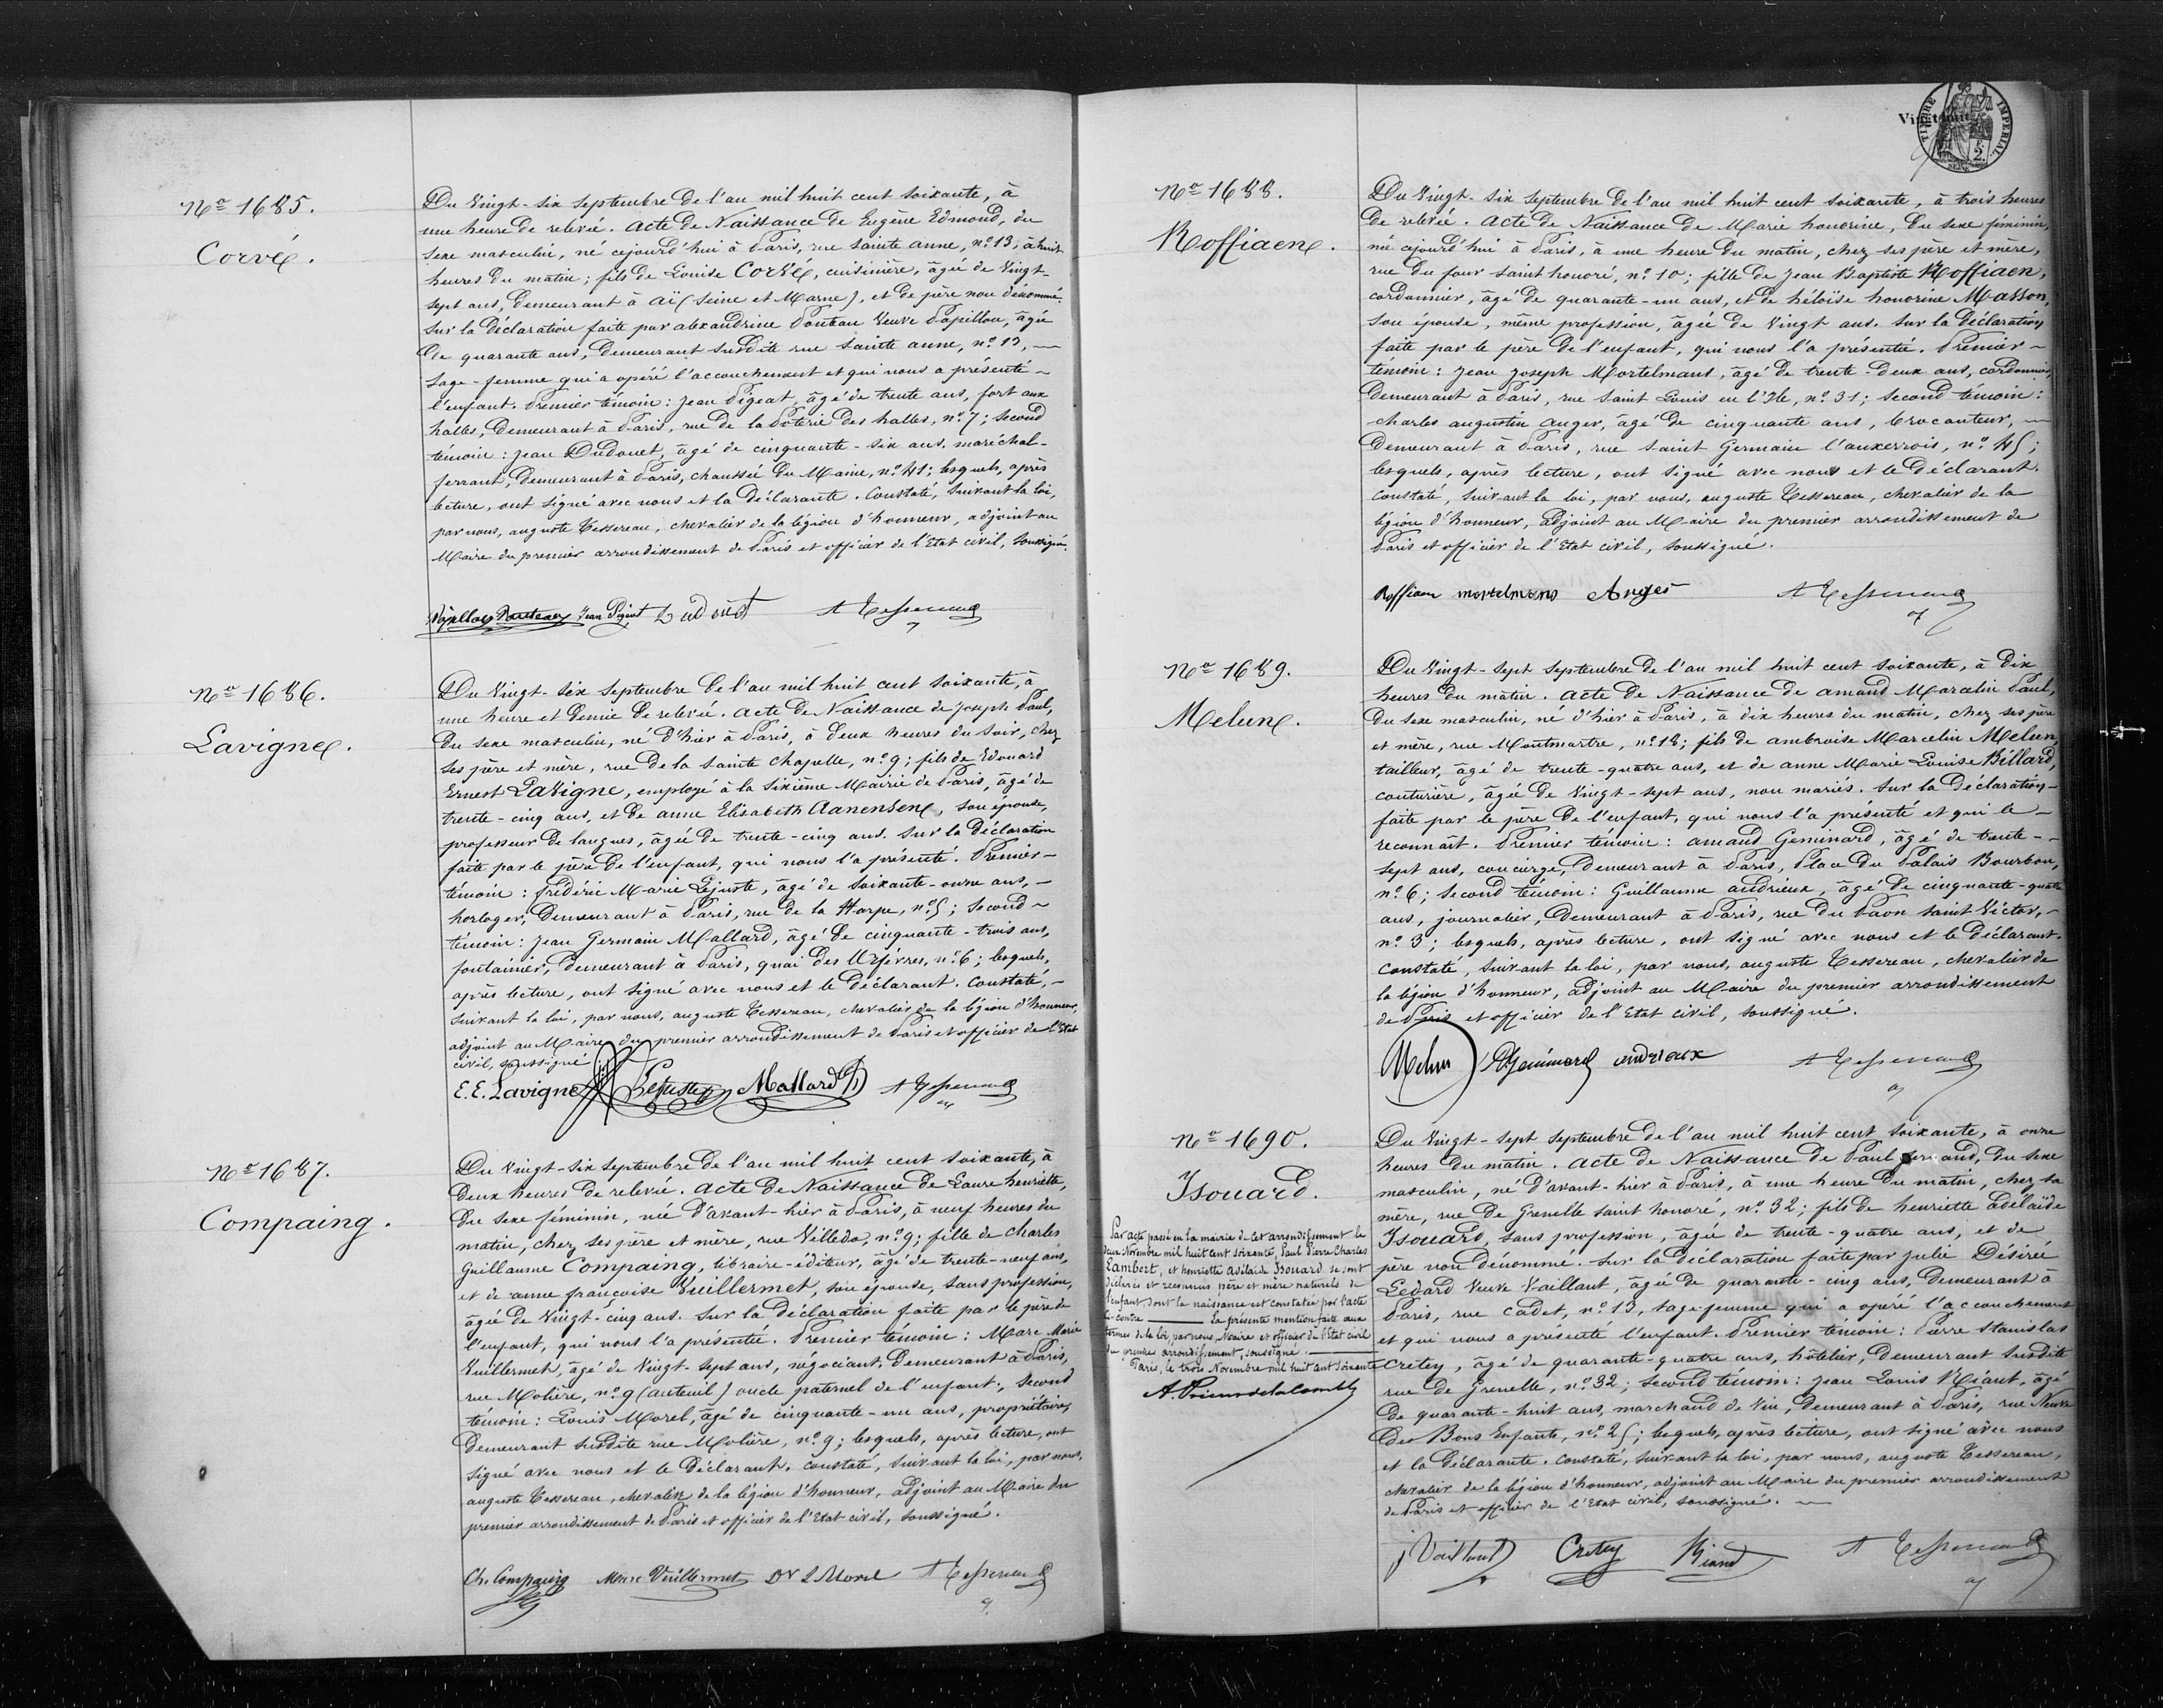 Nº 1685.
Corvé.
Du Vingt-six septembre de l'an mil huit cent soixante, à
une heure de relevée. Acte de Naissance de Eugène Edmond, du
sexe masculin, né cejourd'hui à Paris, rue Sainte Anne, nº 13, à huit
heures du matin; fils de Louise Corvé, cuisinière, âgée de Vingt-
sept ans, demeurant à Aÿ (Seine et Marne), et de père non dénommé.
Sur la déclaration faite par alexandrine Pouteau Veuve Papillon, âgée
de quarante ans, demeurant susdite rue Sainte anne, nº 13,
sage-femme qui a opéré l'accouchement et qui nous a présenté
l'enfant. Premier témoin: Jean Pigeat, âgé de trente ans, fort aux
halles, demeurant à Paris, rue de la Poterie des halles, nº 7; second
témoin: Jean Dudouet, âgé de cinquante-six ans, maréchal-
ferrant, demeurant à Paris, chaussée du Maine, nº 41; lesquels, après
lecture, ont signé avec nous et la déclarante. Constaté, suivant la loi,
par nous, auguste Tessereau, chevalier de la légion d'honneur, adjoint au
Maire du premier arrondissement de Paris et officier de l'Etat civil, soussigné.
Papillon Pouteau Jean Pigeat Dudouet A Tessereau
Nº 1686.
Lavigne.
Du Vingt-six septembre de l'an mil huit cent soixante, à
une heure et demie de relevée. Acte de Naissance de Joseph Paul,
du sexe masculin, né d'hier à Paris, à deux heures du soir, chez
ses père et mère, rue de la Sainte Chapelle, nº 9; fils de Edouard
Ernest Lavigne, employé à la sixième Mairie de Paris, âgé de
trente-cinq ans, et de anne Elisabeth Aanensen, son épouse,
professeur de langues, âgée de trente-cinq ans. Sur la déclaration
faite par le père de l'enfant, qui nous l'a présenté. Premier
témoin: frédéric Marie Lejuste, âgé de soixante-onze ans,
horloger, demeurant à Paris, rue de la Harpe, nº 5; second
témoin: Jean Germain Mallard, âgé de cinquante-trois ans,
fontainier, demeurant à Paris, quai des Orfévres, nº 6; lesquels,
après lecture, ont signé avec nous et le déclarant. Constaté,
suivant la loi, par nous, auguste Tessereau, chevalier de la légion d'honneur,
adjoint au Maire du premier arrondissement de Paris et officier de l'Etat
civil, soussigné.
E. E. Lavigne Lejuste Mallard A Tessereau
Nº 1687.
Compaing.
Du Vingt-six septembre de l'an mil huit cent soixante, à
deux heures de relevée. Acte de Naissance de Laure henriette,
du sexe féminin, née d'avant-hier à Paris, à neuf heures du
matin, chez ses père et mère, rue Villedo, nº 9; fille de Charles
Guillaume Compaing, libraire-éditeur, âgé de trente-neuf ans,
et de anne françoise Vuillermet, son épouse, sans profession,
âgée de Vingt-cinq ans. Sur la déclaration faite par le père de
l'enfant, qui nous l'a présentée. Premier témoin: Marc Marie
Vuillermet, âgé de Vingt-sept ans, négociant, demeurant à Paris,
rue Molière, nº 9 (auteuil) oncle paternel de l'enfant; second
témoin: Louis Morel, âgé de cinquante-un ans, propriétaire,
demeurant susdite rue Molière, nº 9; lesquels, après lecture, ont
signé avec nous et le déclarant. Constaté, suivant la loi, par nous,
auguste Tessereau, chevalier de la légion d'honneur, adjoint au Maire du
premier arrondissement de Paris et officier de l'Etat civil, soussigné.
Ch. Compaing Marc Vuillermet L Morel A Tessereau
TIMBRE IMPERIAL
Nº 1688.
Roffiaen.
Du Vingt-six septembre de l'an mil huit cent soixante, à trois heures
de relevée. Acte de Naissance de Marie honorine, du sexe féminin,
née cejourd'hui à Paris, à une heure du matin, chez ses père et mère,
rue du four saint honoré, nº 10; fille de Jean Baptiste Roffiaen,
cordonnier, âgé de quarante-un ans, et de héloïse honorine Masson,
son épouse, même profession, âgée de Vingt ans. Sur la déclaration
faite par le père de l'enfant, qui nous l'a présenté. Premier
témoin: Jean Joseph Mortelmans, âgé de trente-deux ans, cordonnier,
demeurant à Paris, rue Saint Louis en l'Ile, nº 31; second témoin:
charles augustin Auger, âgé de cinquante ans, brocanteur,
demeurant à Paris, rue Saint Germain l'auxerrois, nº 45;
lesquels, après lecture, ont signé avec nous et le déclarant.
Constaté, suivant la loi, par nous, auguste Tessereau, chevalier de la
légion d'honneur, adjoint au Maire du premier arrondissement de
Paris et officier de l'Etat civil, soussigné.
Roffiaen mortelmans Auger A Tessereau
Nº 1689.
Melun.
Du Vingt-sept septembre de l'an mil huit cent soixante, à dix
heures du matin. Acte de Naissance de amand Marcelin Paul,
du sexe masculin, né d'hier à Paris, à dix heures du matin, chez ses père
et mère, rue Montmartre, nº 18; fils de ambroise Marcelin Melun,
tailleur, âgé de trente-quatre ans, et de anne Marie Louise Billard,
couturière, âgée de Vingt-sept ans, non mariés. Sur la déclaration
faite par le père de l'enfant, qui nous l'a présenté et qui le
reconnaît. Premier témoin: amand Geminard, âgé de trente-
sept ans, concierge, demeurant à Paris, Place du Palais Bourbon,
nº 6; second témoin: Guillaume andrieux, âgé de cinquante-quatre
ans, journalier, demeurant à Paris, rue du Paon Saint Victor,
nº 3; lesquels, après lecture, ont signé avec nous et le déclarant.
Constaté, suivant la loi, par nous, auguste Tessereau, chevalier de
la légion d'honneur, adjoint au Maire du premier arrondissement
de Paris et officier de l'Etat civil, soussigné.
Melun Geminard andrieux A Tessereau
Nº 1690.
Isouard.
Par acte passé en la mairie de cet arrondissement le
deux Novembre mil huit cent soixante, Paul Pierre Charles
Lambert, et henriette Adélaïde Isouard se sont
déclarés et reconnus père et mère naturels de
l'enfant dont la naissance est constatée par l'acte
ci-contre. La présente mention faite aux
termes de la loi, par nous, Maire et officier de l'Etat civil
du premier arrondissement, soussigné.
Paris, le trois Novembre mil huit cent soixante
Du Vingt-sept septembre de l'an mil huit cent soixante, à onze
heures du matin. Acte de Naissance de Paul fernand, du sexe
masculin, né d'avant-hier à Paris, à une heure du matin, chez sa
mère, rue de Grenelle saint honoré, nº 32; fils de henriette adélaïde
Isouard, sans profession, âgée de trente-quatre ans, et de
père non dénommé. Sur la déclaration faite par julie Désirée
Ledard Veuve Vaillant, âgée de quarante-cinq ans, demeurant à
Paris, rue Cadet, nº 13, sage-femme qui a opéré l'accouchement
et qui nous a présenté l'enfant. Premier témoin: Pierre Stanislas
Cretey, âgé de quarante-quatre ans, hôtelier, demeurant susdite
rue de Grenelle, nº 32; second témoin: Jean Louis Riant, âgé
de quarante-huit ans, marchand de Vin, demeurant à Paris, rue Neuve
des Bons Enfants, nº 25; lesquels, après lecture, ont signé avec nous
et la déclarante. Constaté, suivant la loi, par nous, auguste Tessereau,
chevalier de la légion d'honneur, adjoint au Maire du premier arrondissement
de Paris et officier de l'Etat civil, soussigné.
Vaillant Cretey Riant A Tessereau